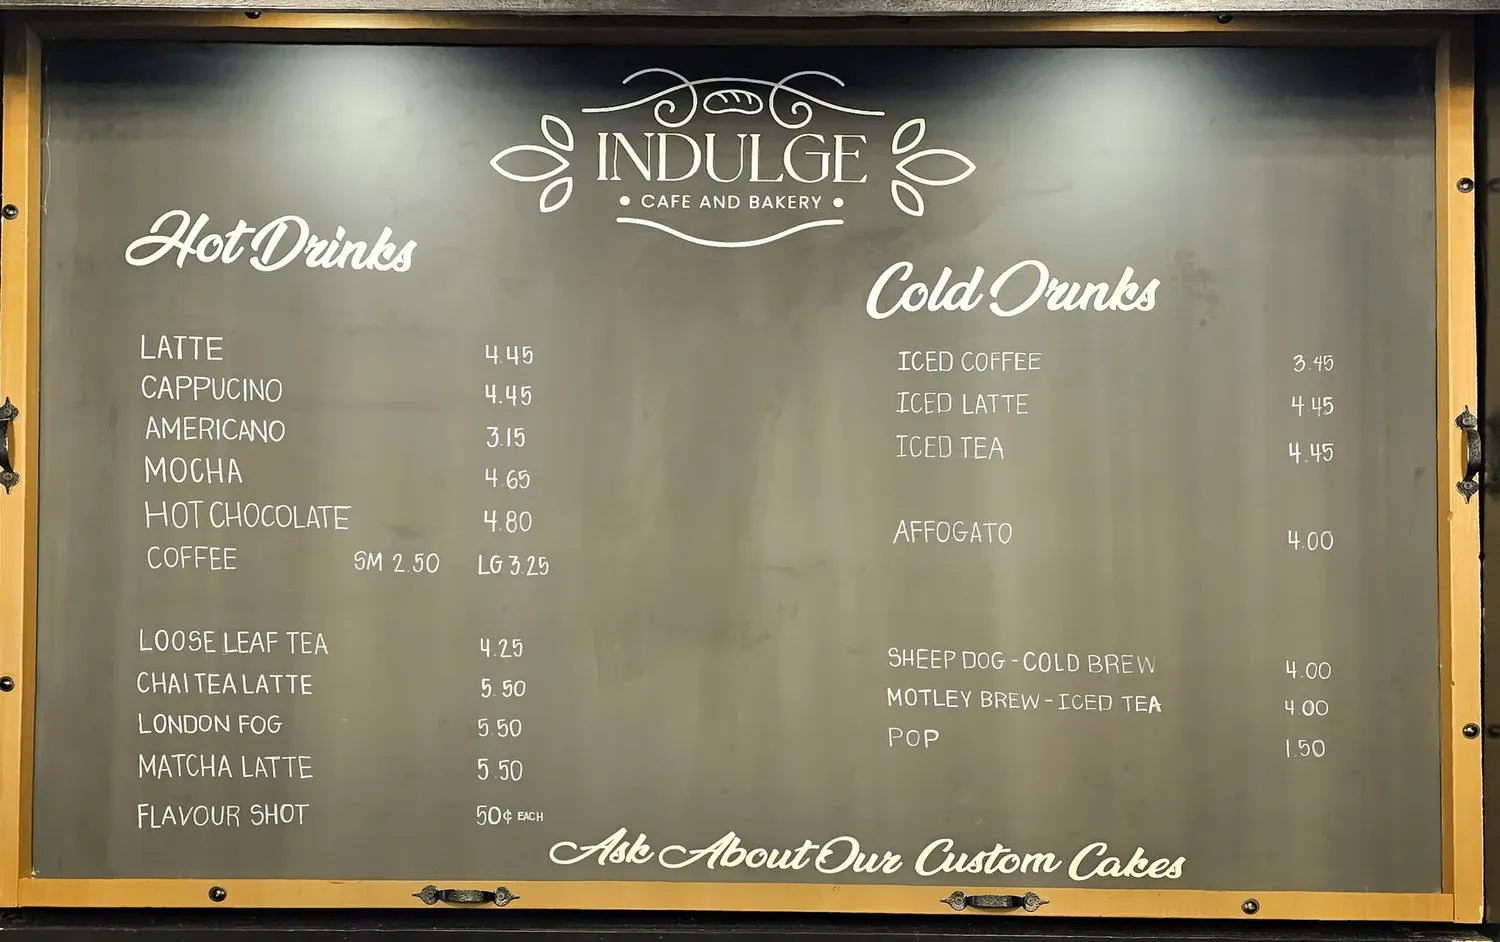 INDULGE
• CAFE AND BAKERY •
Hot Drinks
LATTE 4.45
CAPPUCINO 4.45
AMERICANO 3.15
MOCHA 4.65
HOT CHOCOLATE 4.80
COFFEE SM 2.50 LG 3.25
LOOSE LEAF TEA 4.25
CHAI TEA LATTE 5.50
LONDON FOG 5.50
MATCHA LATTE 5.50
FLAVOUR SHOT 50¢ EACH
Cold Drinks
ICED COFFEE 3.45
ICED LATTE 4.45
ICED TEA 4.45
AFFOGATO 4.00
SHEEP DOG - COLD BREW 4.00
MOTLEY BREW - ICED TEA 4.00
POP 1.50
Ask About Our Custom Cakes